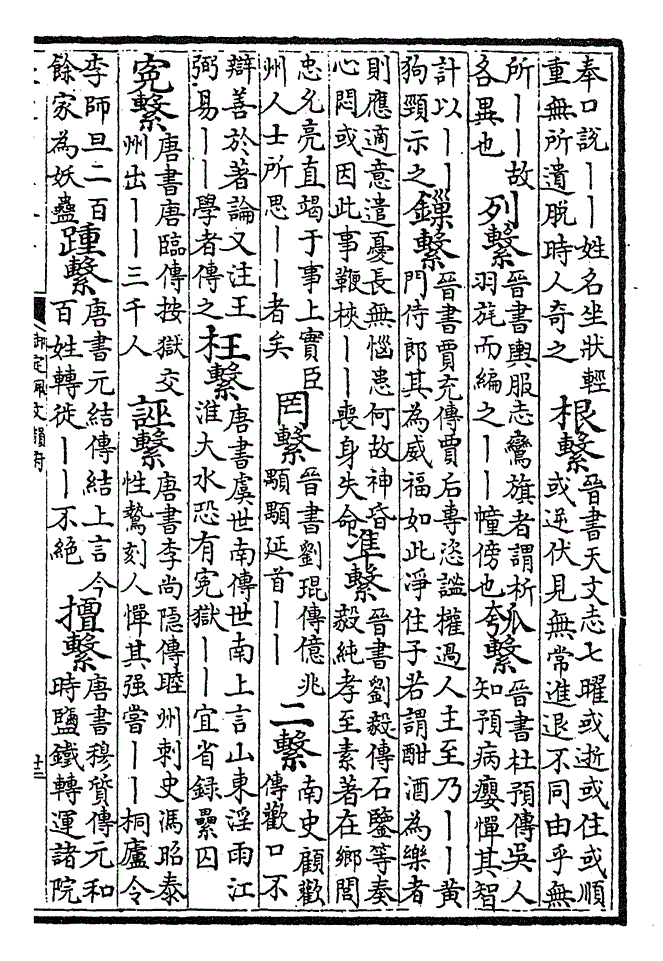 奉口說丨丨姓名坐狀輕重無所遺脫時人奇之 根繫 晉書天文志七曜或逝或住或順或逆伏見無常進退不同由乎無
所丨丨故各異也 列繫 晉書輿服志鸞旗者謂析羽旄而編之丨丨幢傍也 瓠繫 晉書杜預傳吳人知預病癭憚其智
計以丨丨狗頸示之 鏁繫 晉書賈充傳賈后專恣謐權過人主至乃丨丨黃門侍郎其為威福如此淨住子若謂酣酒為樂者
則應適意遣憂長無惱患何故神昏心悶或因此事鞭梜丨丨喪身失命 準繫 晉書劉毅傳石鑒等奏毅純孝至素著在鄉閭
忠允亮直竭于事上實臣州人士所思丨丨者矣 罔繫 晉書劉琨傳億兆顒顒延首丨丨 二繫 南史顧歡傳歡口不
辯善於著論又注王弼易丨丨學者傳之 枉繫 唐書虞世南傳世南上言山東淫雨江淮大水恐有寃獄丨丨宜省錄纍囚
寃繫 唐書唐臨傳按獄交州出丨丨三千人 誣繫 唐書李尚隱傳睦州刺史馮昭泰性鷙刻人憚其强嘗丨丨桐廬令
李師旦二百餘家為妖蠱 踵繫 唐書元結傳結上言今百姓轉徙丨丨不絶 擅繫 唐書穆質傳元和時鹽鐵轉運諸院
御定佩文韻府